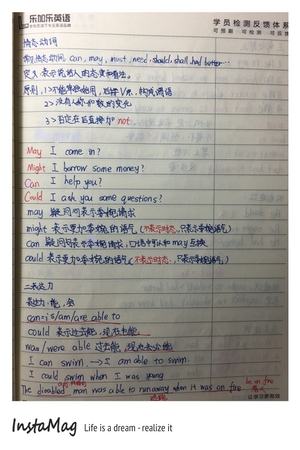 乐加乐英语
学员检测反馈体系
可预期 可检测 可反馈
情态动词
常见情态动词 can, may, must, need, should, shall, had better…
定义: 表示说话人的态度和看法。
原则: 1>不能单独使用, 后接V原, 构成谓语
2>没有人称和数的变化
3>否定在后直接加 not.
May I come in?
Might I borrow some money?
Can I help you?
Could I ask you some questions?
may 疑问句表示委婉请求
might 表示更加委婉的语气 (不表示时态, 只表示委婉语气)
can 疑问句表示委婉请求, 口语中可以和may互换
could 表示更加委婉的语气 (不表示时态, 只表示委婉语气)
二 表达能力
表达力: 能, 会
can=is/am/are able to
could 表示过去能, 现在不能
was/were able 过去能, 现在
I can swim. → I am able to swim.
I could swim when I was young
The disabled man was able to run away when it was on fire
be on fire
InstaMag Life is a dream - realize it